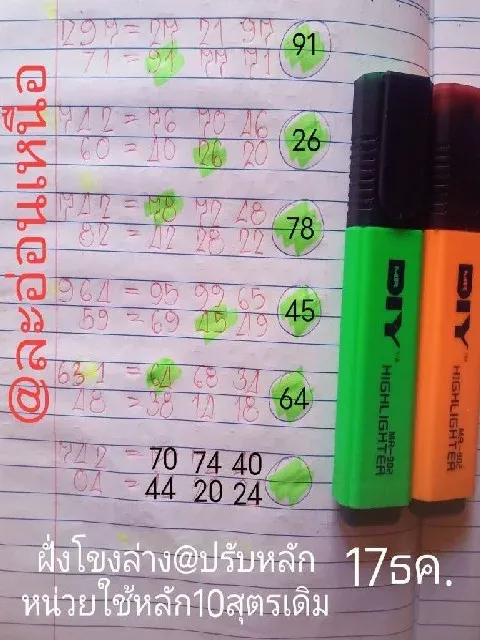 @ละอ่อนเหนือ
1297 = 27 21 97
71 = 91 77 71
91
742 = 76 70 46
60 = 40 26 20
26
742 = 78 72 48
82 = 42 28 22
78
964 = 95 99 65
59 = 69 45 49
45
631 = 64 68 34
48 = 38 14 18
64
742 = 70 74 40
04 = 44 20 24
MR. DIY
HIGHLIGHTER
MR. DIY
HIGHLIGHTER
ฝั่งโขงล่าง@ปรับหลัก
หน่วยใช้หลัก10สูตรเดิม
17ธค.